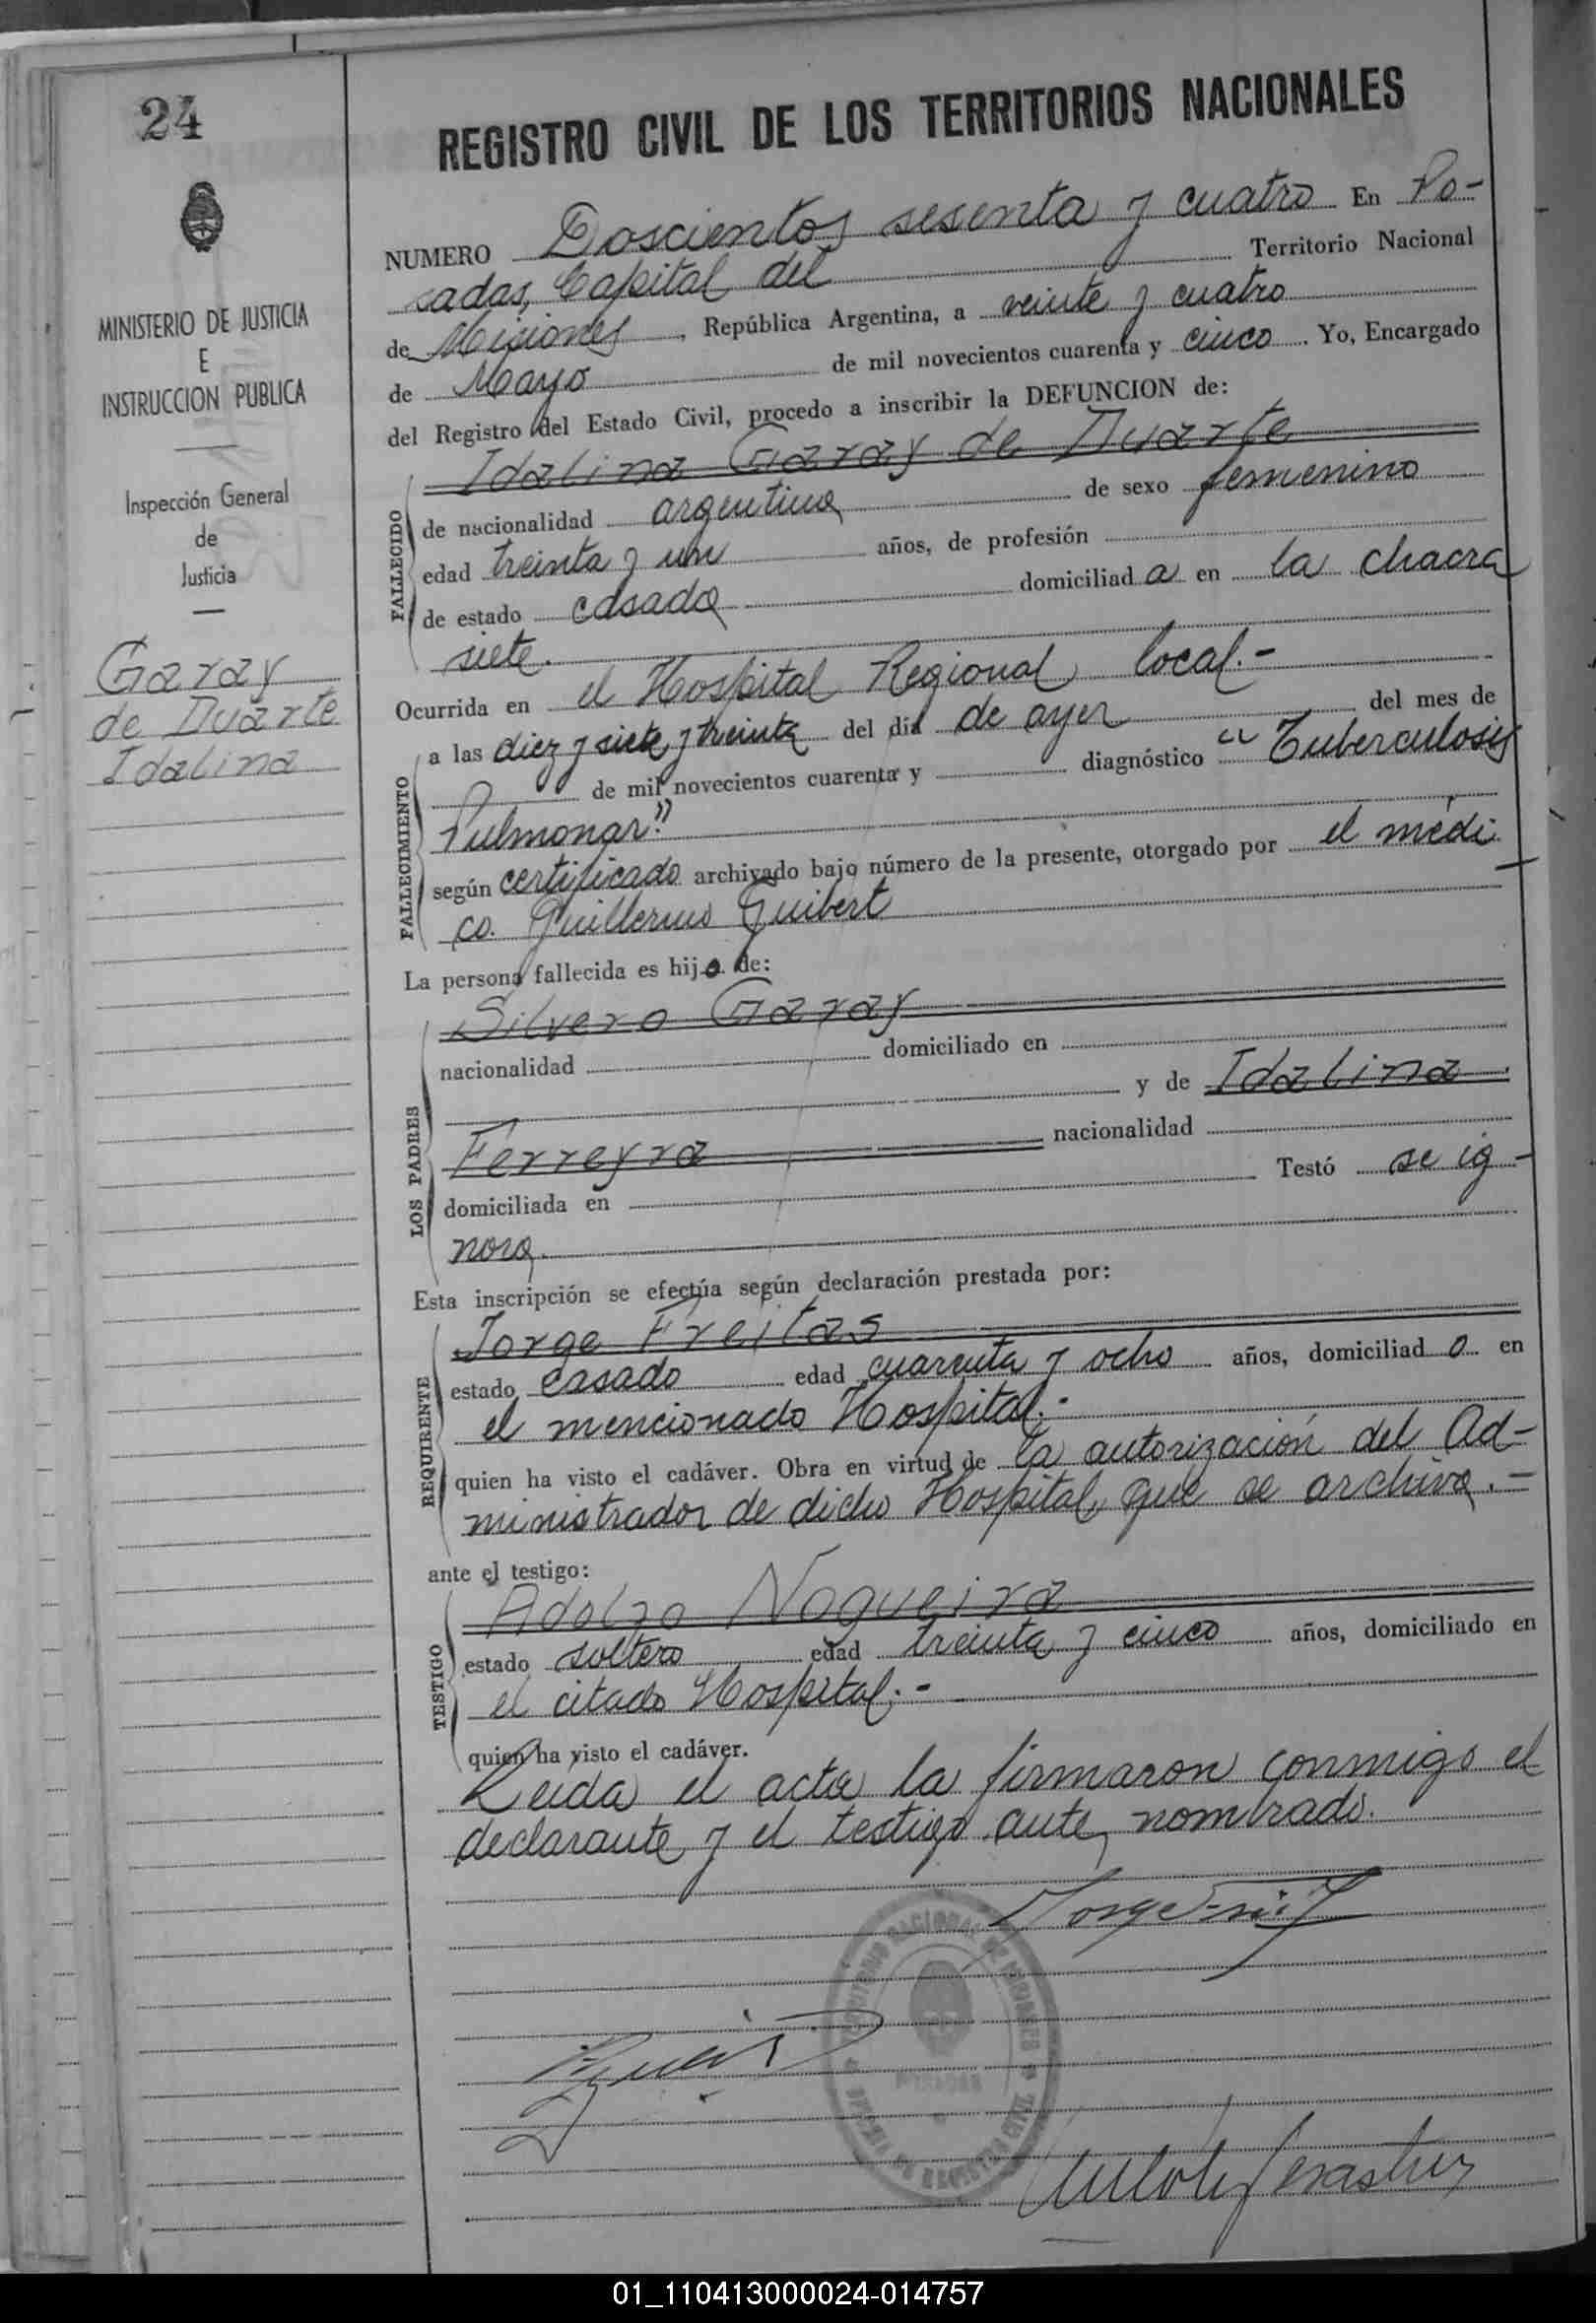 24
REGISTRO CIVIL DE LOS TERRITORIOS NACIONALES
NUMERO Doscientos sesenta y cuatro En Po-
sadas, Capital del Territorio Nacional
de Misiones, República Argentina, a veinte y cuatro
de Mayo de mil novecientos cuarenta y cinco. Yo, Encargado
del Registro del Estado Civil, procedo a inscribir la DEFUNCION de:
Idalina Garay de Duarte
de nacionalidad argentina de sexo femenino
edad treinta y un años, de profesión
de estado casada domiciliad a en la chacra
siete.
FALLECIDO
Ocurrida en el Hospital Regional local.-
a las diez y siete y treinta del día de ayer del mes de
de mil novecientos cuarenta y diagnóstico "Tuberculosis
Pulmonar."
según certificado archivado bajo número de la presente, otorgado por el médi
co. Guillermo Guibert
FALLECIMIENTO
La persona fallecida es hija de:
Silvero Garay
nacionalidad domiciliado en
y de Idalina
Ferreyra nacionalidad
domiciliada en Testó se ig-
nora.
LOS PADRES
Esta inscripción se efectúa según declaración prestada por:
Jorge Freitas
estado casado edad cuarenta y ocho años, domiciliad o en
el mencionado Hospital.-
quien ha visto el cadáver. Obra en virtud de la autorización del Ad-
ministrador de dicho Hospital, que se archiva.-
REQUIRENTE
ante el testigo:
Adolfo Nogueira
estado soltero edad treinta y cinco años, domiciliado en
el citado Hospital.-
quien ha visto el cadáver.
TESTIGO
Leida el acta la firmaron conmigo el
declarante y el testigo ante nombrado.
MINISTERIO DE JUSTICIA
E
INSTRUCCION PUBLICA
Inspección General
de
Justicia
Garay
de Duarte
Idalina
01_110413000024-014757